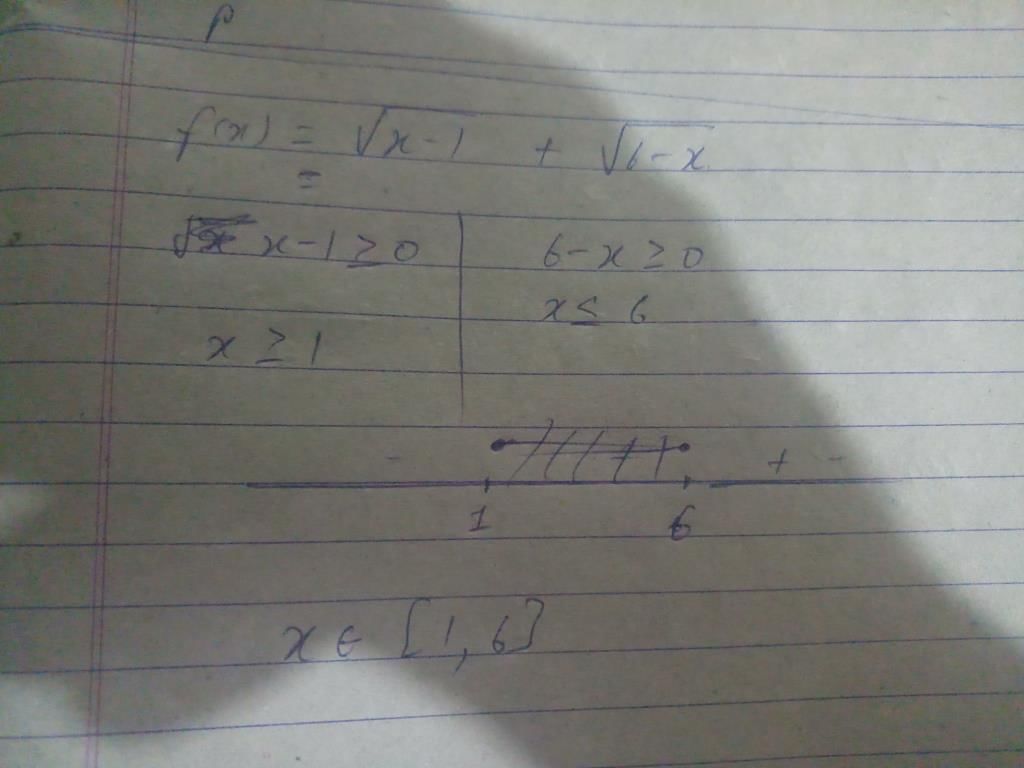 P
f(x) = √x-1 + √6-x
=
x-1 ≥ 0 6-x ≥ 0
x ≤ 6
x ≥ 1
- + -
1 6
x ∈ [1, 6]